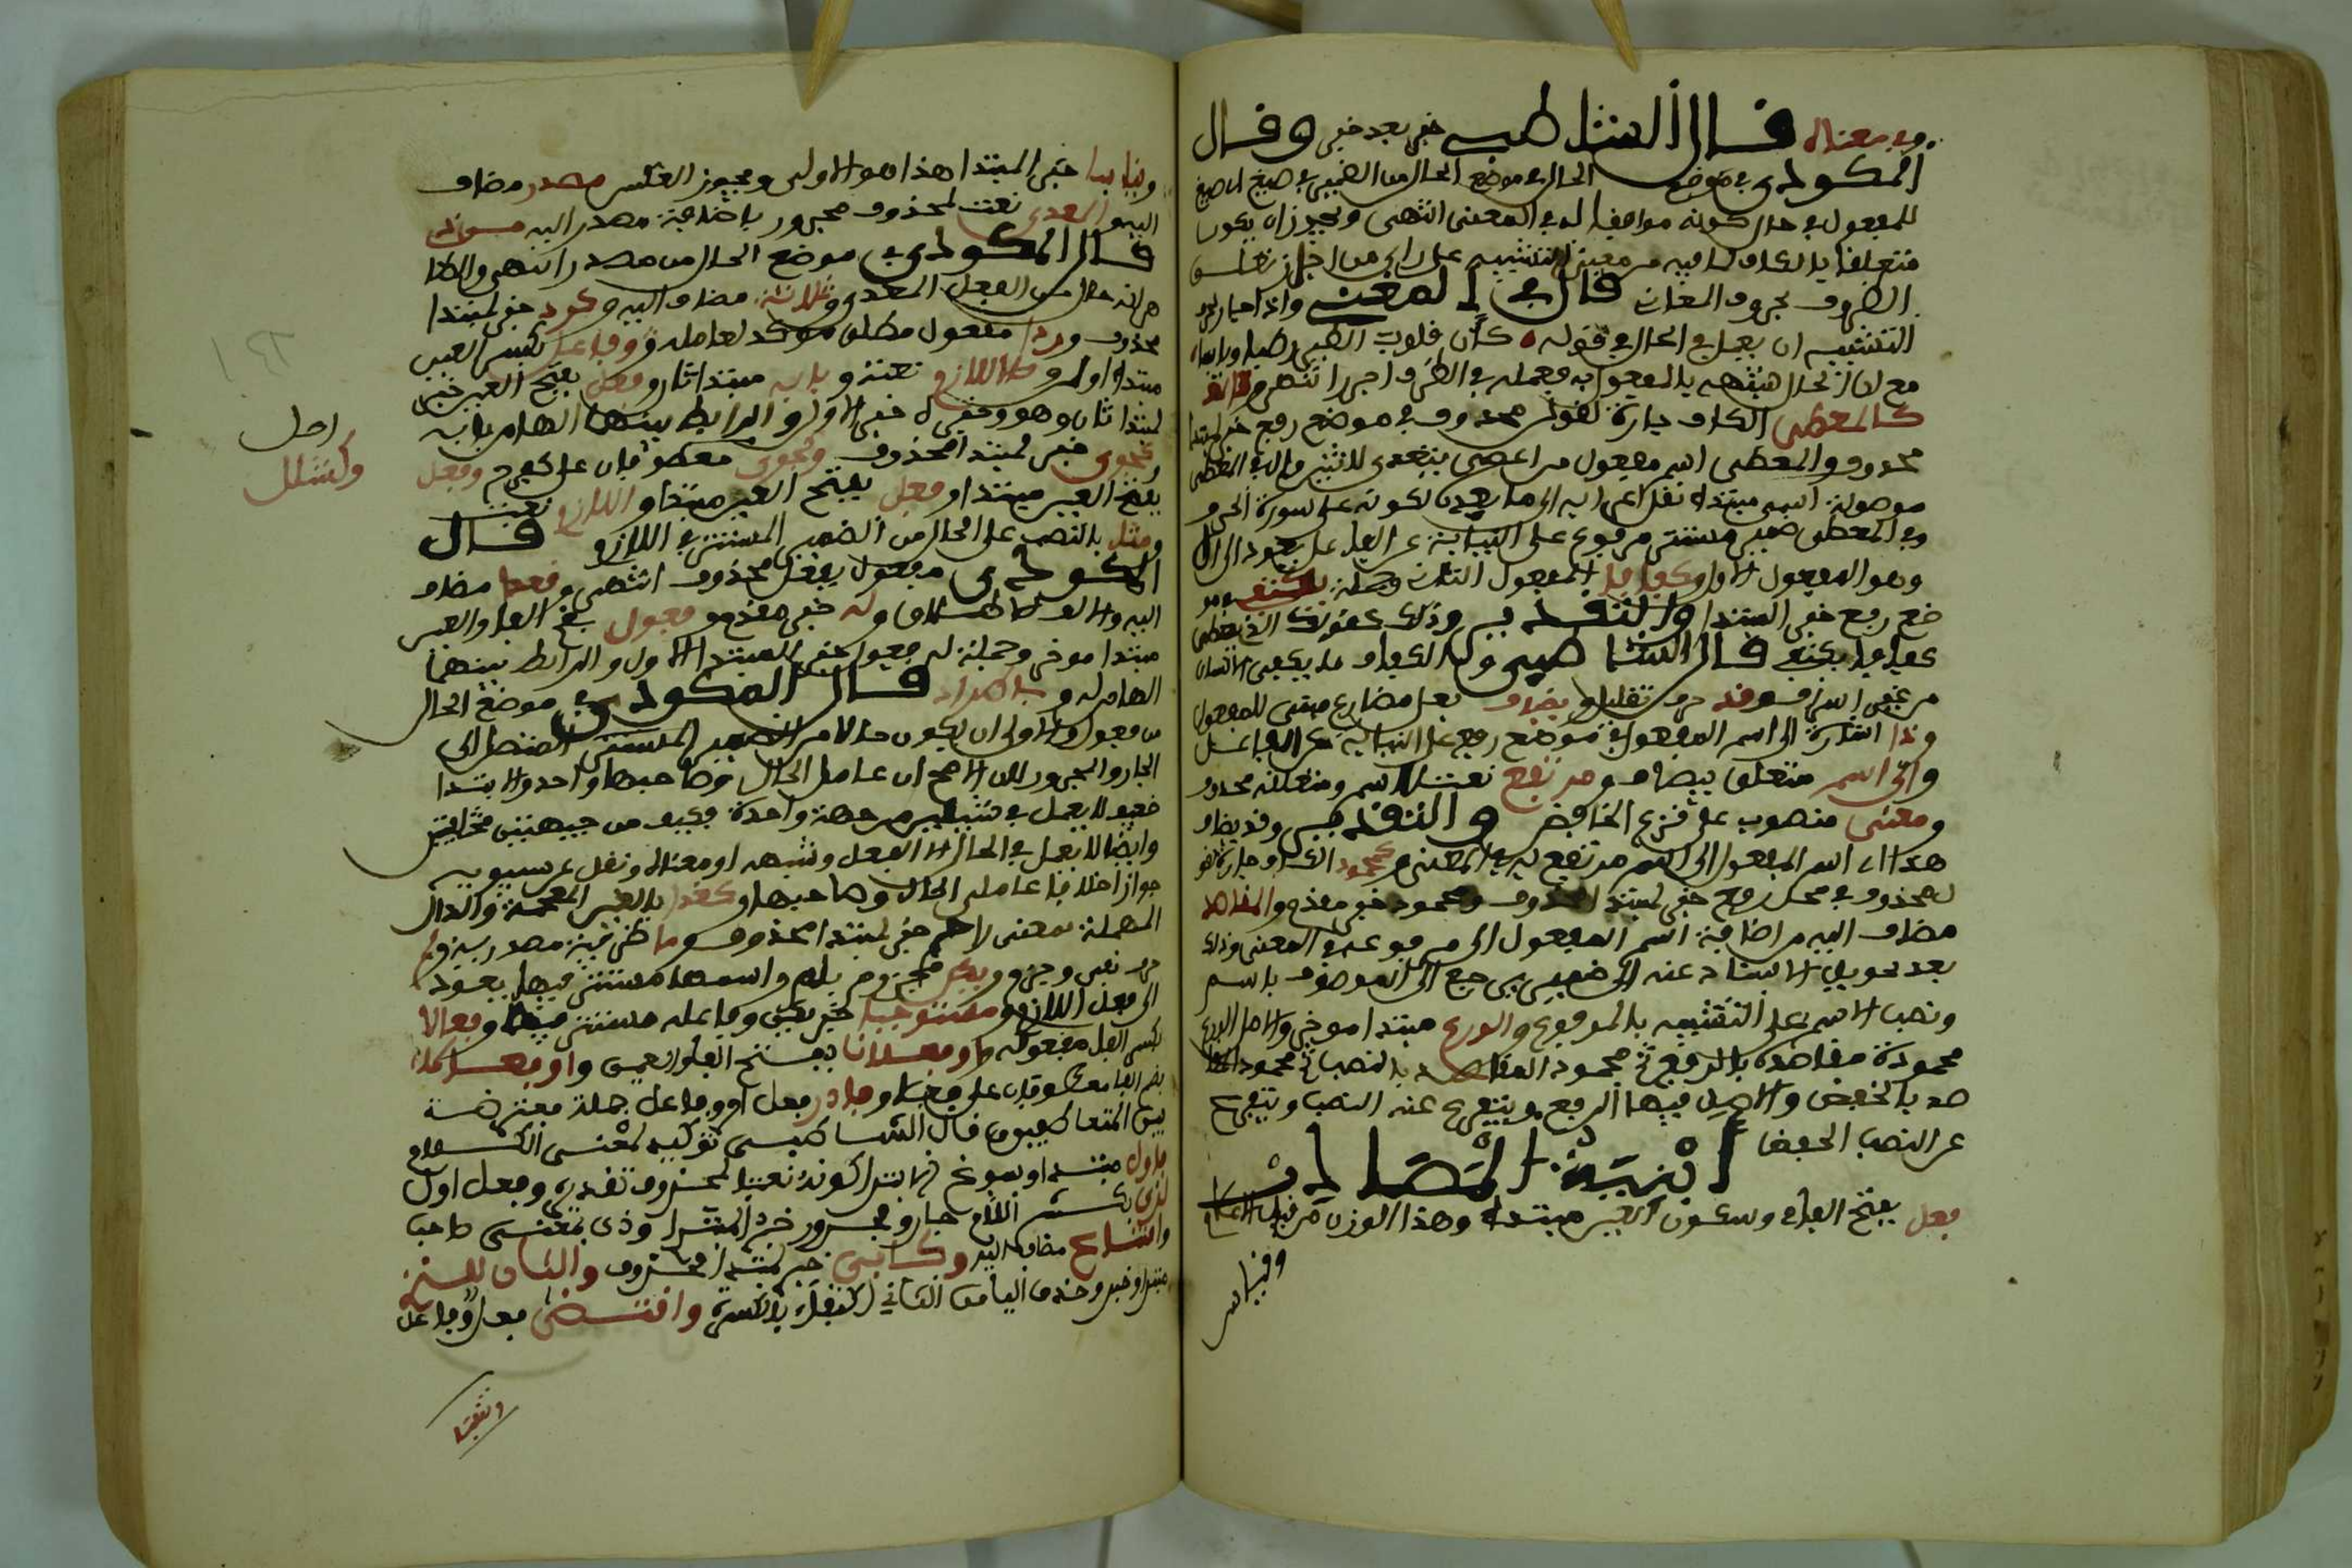 وفي معناه قال الشاطبي خبر بعد خبر وقال
المكودي في موضع الحال في موضع الحال من الضمير في صيغ اي صيغ
للمفعول في حال كونه موافقا له في المعنى انتهى ويجوز ان يكون
متعلقا بالكاف لما فيه من معنى التشبيه على راي من اجاز تعلق
الظروف بحروف المعاني قال في المغني واذا جاز لحرف
التشبيه ان يعمل في الحال في قوله كان قلوب الطير رطبا ويابسا
مع ان الحال شبيهة بالمفعول به فعمله في الظرف اجدر انتهى
كالمعطى الكاف جارة لقول محذوف في موضع رفع خبر لمبتدا
محذوف والمعطى اسم مفعول من اعطى يتعدى لاثنين وال في المعطى
موصولة اسمي مبتدا نقل اعرابه الى ما بعدها لكونه على صورة الحرف
وفي المعطى ضمير مستتر مرفوع على النيابة عن الفاعل يعود الى ال
وهو المفعول الاول وكفافا المفعول الثاني وجملة يكتفي في مو
ضع رفع خبر المبتدا والتقدير وذلك كقولك الذي يعطى
كفافا يكتفي قال الشاطبي والكفاف ما يكفي الانسان
من غير اسراف وقد حرف تقليل ويضاف فعل مضارع مبني للمفعول
وذا اشارة الى اسم المفعول في موضع رفع على النيابة عن الفاعل
والى اسم متعلق بيضاف ومرتفع نعت لاسم ومتعلقه محذوف
ومعنى منصوب على نزع الخافض والتقدير وقد يضاف
هذا اي اسم المفعول الى اسم مرتفع به في المعنى كمحمود الكاف جارة لقو
ل محذوف في محل رفع خبر لمبتدا محذوف ومحمود خبر مقدم والمقاصد
مضاف اليه من اضافة اسم المفعول الى مرفوعه في المعنى وذلك
بعد تحويل الاسناد عنه الى ضمير يرجع الى الموصوف باسم
ونصب الاسم على التشبيه بالمفعول والورع مبتدا موخر والاصل الورع
محمودة مقاصده بالرفع ثم محمود المقاصد بالنصب ثم محمود المقا
صد بالخفض والاصل فيها الرفع ويتفرع عنه النصب ويتفرع
عن النصب الخفض ابنية المصادر
فعل بفتح الفاء وسكون العين مبتدا وهذا الوزن من قبيل الاعلام
وقياس
ونيابيا خبر المبتدا هذا هو الاولى ويجوز العكس مصدر مضاف
اليه والمعدى نعت لمحذوف مجرور باضافة مصدر اليه من ذي
قال المكودي في موضع الحال من مصدر انتهى والظا
هر انه حال من الفعل المعدى وثلاثة مضاف اليه وكرد خبر لمبتدا
محذوف وردا مفعول مطلق موكد لعامله وفعل بكسر العين
مبتدا اول واللازم نعته وبابه مبتدا ثان وفعل بفتح العين خبر
لمبتدا ثان وهو وخبره خبر الاول والرابط بينهما الهاء من بابه
وكجوى خبر لمبتدا محذوف وكجوى معطوفان على كفرح وفعل
بفتح العين مبتدا وفعل بفتح العين مبتدا واللازم نعت
ومثل بالنصب على الحال من الضمير المستتر في اللازم قال
المكودي مفعول بفعل محذوف انتهى وقعدا مضاف
اليه والفه للاطلاق وله خبر مقدم وفعول بضم الفاء والعين
مبتدا موخر وجملة له فعول خبر المبتدا الاول والرابط بينهما
الهاء من له وباطراد قال المكودي في موضع الحال
من فعول والاولى ان يكون حالا من الضمير المستتر المنتقل الى
الجار والمجرور لان الاصح ان عامل الحال وصاحبها واحد والابتدا
ضعيف لا يعمل في شيئين من جهة واحدة فكيف من جهتين مختلفتين
وايضا لا يعمل في الحال الا الفعل وشبهه او معناه ونقل عن سيبويه
جواز اختلاف عاملي الحال وصاحبها وكغدا بالغين المعجمة والدال
المهملة بمعنى راح خبر لمبتدا محذوف وما ظرفية مصدرية ولم
حرف نفي وجزم ويكن مجزوم بلم واسمها مستتر فيها يعود
الى فعل اللازم ومستوجبا خبر يكن وفاعله مستتر فيها وفعالا
بكسر الفاء مفعوله او فعلانا بفتح الفاء والعين واو فعالا
بضم الفاء معطوفان على فعالا وفادر فعل امر وفاعل جملة معترضة
بين المتعاطفين قال الشاطبي توكيد لمعنى الكلام
فاول مبتدا وسوغ الابتدا كونه نعتا لمحذوف تقديره وفعل اول
لذي بكسر اللام جار ومجرور خبر المبتدا وذي بمعنى صاحب
وامتناع مضاف اليه وكابى خبر لمبتدا محذوف والثان للذي
مبتدا وخبر وحذف الياء من الثاني اكتفاء بالكسرة واقتضى فعل وفاعل
اصل
وكشلل